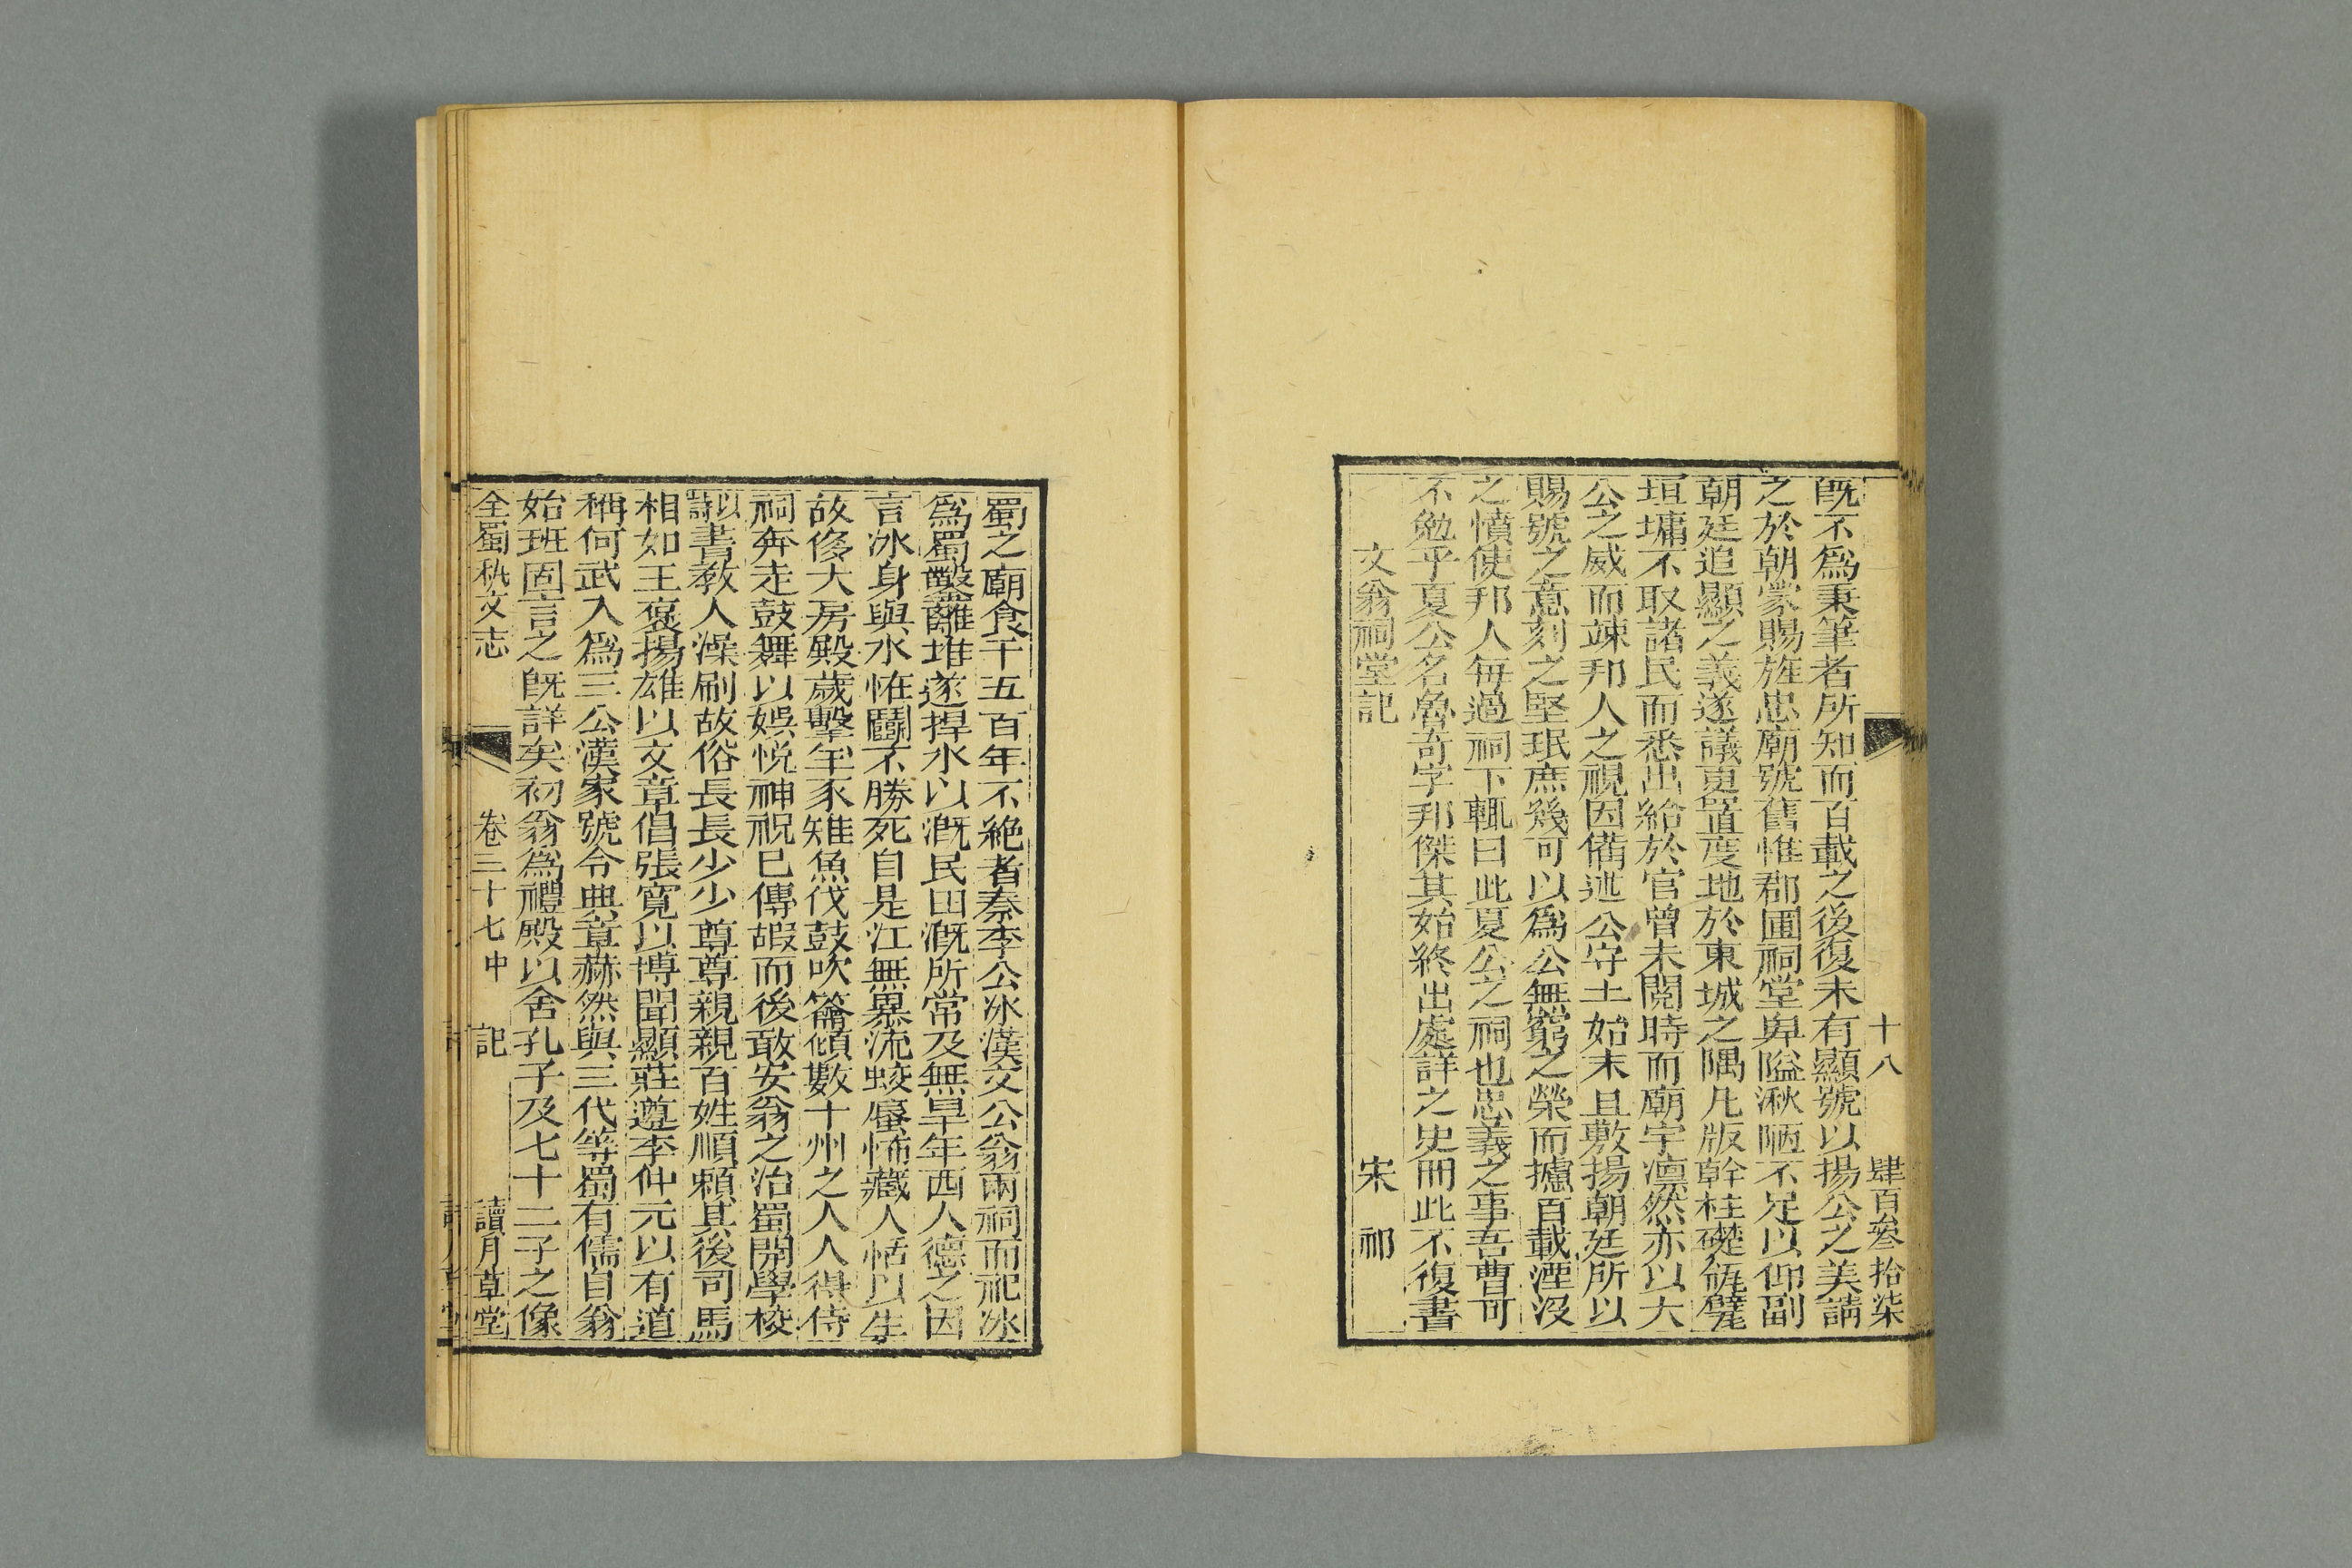 十八 肆百叁拾柒
旣不爲秉筆者所知而百載之後復未有顯號以揚公之美請
之於朝蒙賜旌忠廟號舊惟郡圃祠堂卑隘湫陋不足以仰副
朝廷追顯之義遂議更置度地於東城之隅凡版幹柱礎瓴甓
垣墉不取諸民而悉出給於官曾未閱時而廟宇凛然亦以大
公之威而竦邦人之視因備述公守土始末且敷揚朝廷所以
賜號之意刻之堅珉庶幾可以爲公無窮之榮而攄百載湮没
之憤使邦人每過祠下輒曰此夏公之祠也忠義之事吾曹可
不勉乎夏公名魯奇字邦傑其始終出處詳之史冊此不復書
文翁祠堂記 宋祁
蜀之廟食千五百年不絶者秦李公冰漢文公翁兩祠而祀冰
爲蜀鑿離堆遂捍水以溉民田溉所常及無旱年西人德之因
言冰身與水怪鬬不勝死自是江無暴流蛟蜃怖藏人恬以生
故侈大房殿歲擊羊豕雉魚伐鼓吹籥傾數十州之人人得侍
祠奔走鼓舞以娛悦神祝已傳嘏而後敢安翁之治蜀開學校
以詩書教人澡刷故俗長長少少尊尊親親百姓順賴其後司馬
相如王襃揚雄以文章倡張寬以博聞顯莊遵李仲元以有道
稱何武入爲三公漢家號令典章赫然與三代等蜀有儒自翁
始班固言之旣詳矣初翁爲禮殿以舍孔子及七十二子之像
全蜀秇文志 卷三十七中 記 讀月草堂